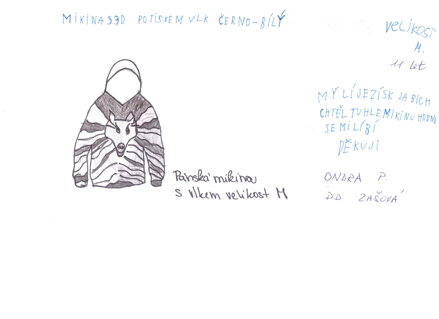 MIKINA S 3D POTISKEM VLK ČERNO-BÍLÝ
VELIKOST
M.
11 let
MYLÍ JEZÍSK JA BICH
CHTĚL TUHLE MIKINU HODNĚ
SE MI LÍBÍ
DĚKUJI
Pánská mikina
S vlkem velikost M
ONDRA P.
DD ZAŠOVÁ